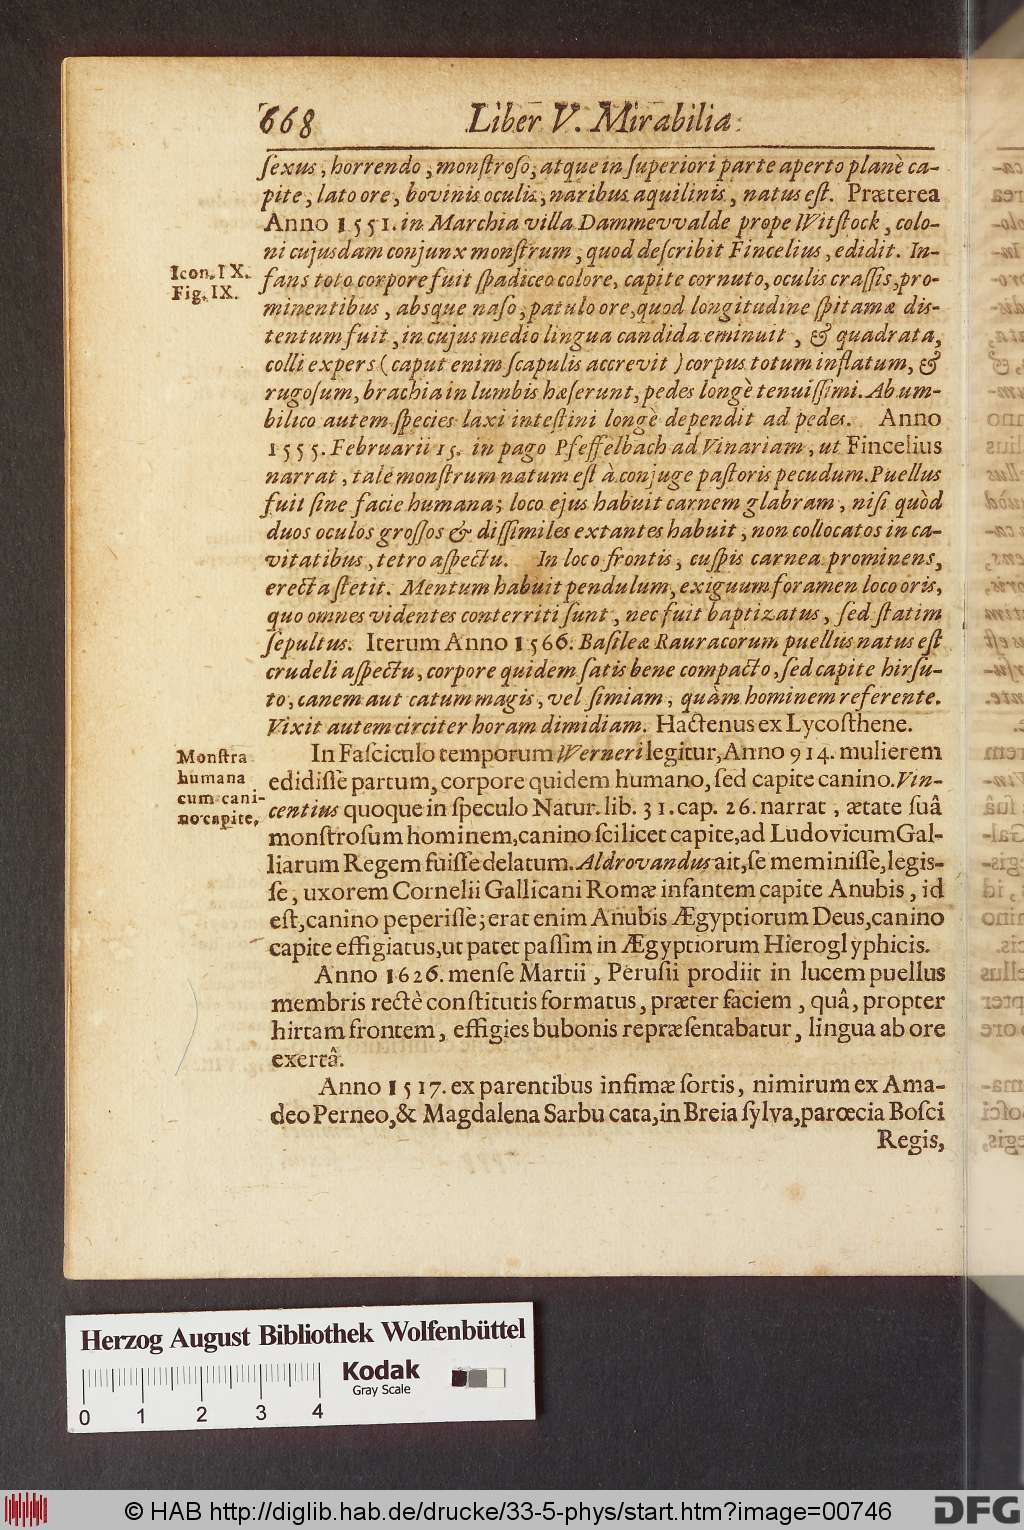 668 Liber V. Mirabilia
ſexus, horrendo, monſtroſo, atque in ſuperiori parte aperto planè ca-
pite, lato ore, bovinis oculis, naribus aquilinis, natus eſt. Præterea
Anno 1551. in Marchia villa Dammevvalde prope Witſtock, colo-
ni cujusdam conjunx monſtrum, quod deſcribit Fincelius, edidit. In-
Icon. IX.
Fig. IX.
fans toto corpore fuit ſpadiceo colore, capite cornuto, oculis craſſis, pro-
minentibus, absque naſo, patulo ore, quod longitudine ſpitamæ dis-
tentum fuit, in cujus medio lingua candida eminuit, & quadrata,
colli expers (caput enim ſcapulis accrevit) corpus totum inflatum, &
rugoſum, brachia in lumbis hæſerunt, pedes longè tenuiſſimi. Ab um-
bilico autem ſpecies laxi inteſtini longè dependit ad pedes. Anno
1555. Februarii 15. in pago Pfeffelbach ad Vinariam, ut Fincelius
narrat, tale monſtrum natum eſt à conjuge paſtoris pecudum. Puellus
fuit ſine facie humana; loco ejus habuit carnem glabram, niſi quòd
duos oculos groſſos & diſſimiles extantes habuit, non collocatos in ca-
vitatibus, tetro aſpectu. In loco frontis, cuſpis carnea prominens,
erecta ſtetit. Mentum habuit pendulum, exiguum foramen loco oris,
quo omnes videntes conterriti ſunt, nec fuit baptizatus, ſed ſtatim
ſepultus. Iterum Anno 1566. Baſileæ Rauracorum puellus natus eſt
crudeli aſpectu, corpore quidem ſatis bene compacto, ſed capite hirſu-
to, canem aut catum magis, vel ſimiam, quàm hominem referente.
Vixit autem circiter horam dimidiam. Hactenus ex Lycoſthene.
Monſtra
humana
cum cani-
no capite,
In Faſciculo temporum Werneri legitur, Anno 914. mulierem
edidiſſe partum, corpore quidem humano, ſed capite canino. Vin-
centius quoque in ſpeculo Natur. lib. 31. cap. 26. narrat, ætate ſuâ
monſtroſum hominem, canino ſcilicet capite, ad Ludovicum Gal-
liarum Regem fuiſſe delatum. Aldrovandus ait, ſe meminiſſe, legis-
ſe, uxorem Cornelii Gallicani Romæ infantem capite Anubis, id
eſt, canino peperiſſe; erat enim Anubis Ægyptiorum Deus, canino
capite effigiatus, ut patet paſſim in Ægyptiorum Hieroglyphicis.
Anno 1626. menſe Martii, Peruſii prodiit in lucem puellus
membris rectè conſtitutis formatus, præter faciem, quâ, propter
hirtam frontem, effigies bubonis repræſentabatur, lingua ab ore
exertâ.
Anno 1517. ex parentibus infimæ ſortis, nimirum ex Ama-
deo Perneo, & Magdalena Sarbu cata, in Breia ſylva, parœcia Boſci
Regis,
Herzog August Bibliothek Wolfenbüttel
Kodak
Gray Scale
0 1 2 3 4
© HAB http://diglib.hab.de/drucke/33-5-phys/start.htm?image=00746
DFG